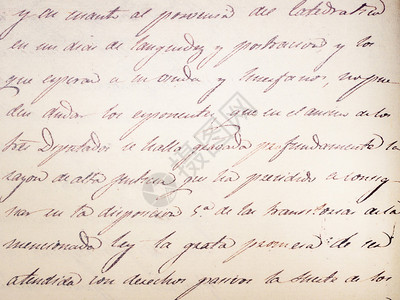 y en cuanto al porvenir del Catedratico
en un dia de languidez y postracion y los
que esperan a su viuda y huerfanos, no pue
den dudar los exponentes que en el animo de los
tres Diputados se halla grabada profundamente la
razon de alta justicia que ha precedido a consig
nar en la disposicion 5.ª de las transitorias de la
mencionada ley la grata promesa de ser
atendida con derechos pasivos la suerte de los